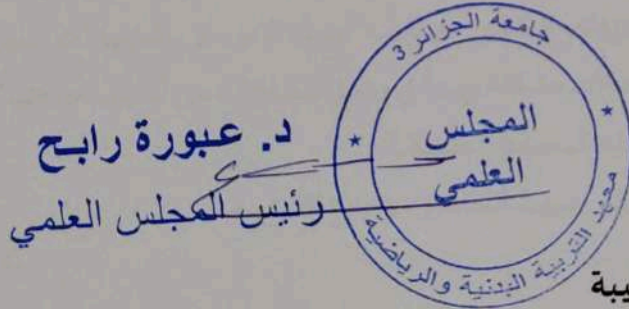 جامعة الجزائر 3
المجلس
العلمي
معهد التربية البدنية والرياضية
د. عبورة رابح
رئيس المجلس العلمي